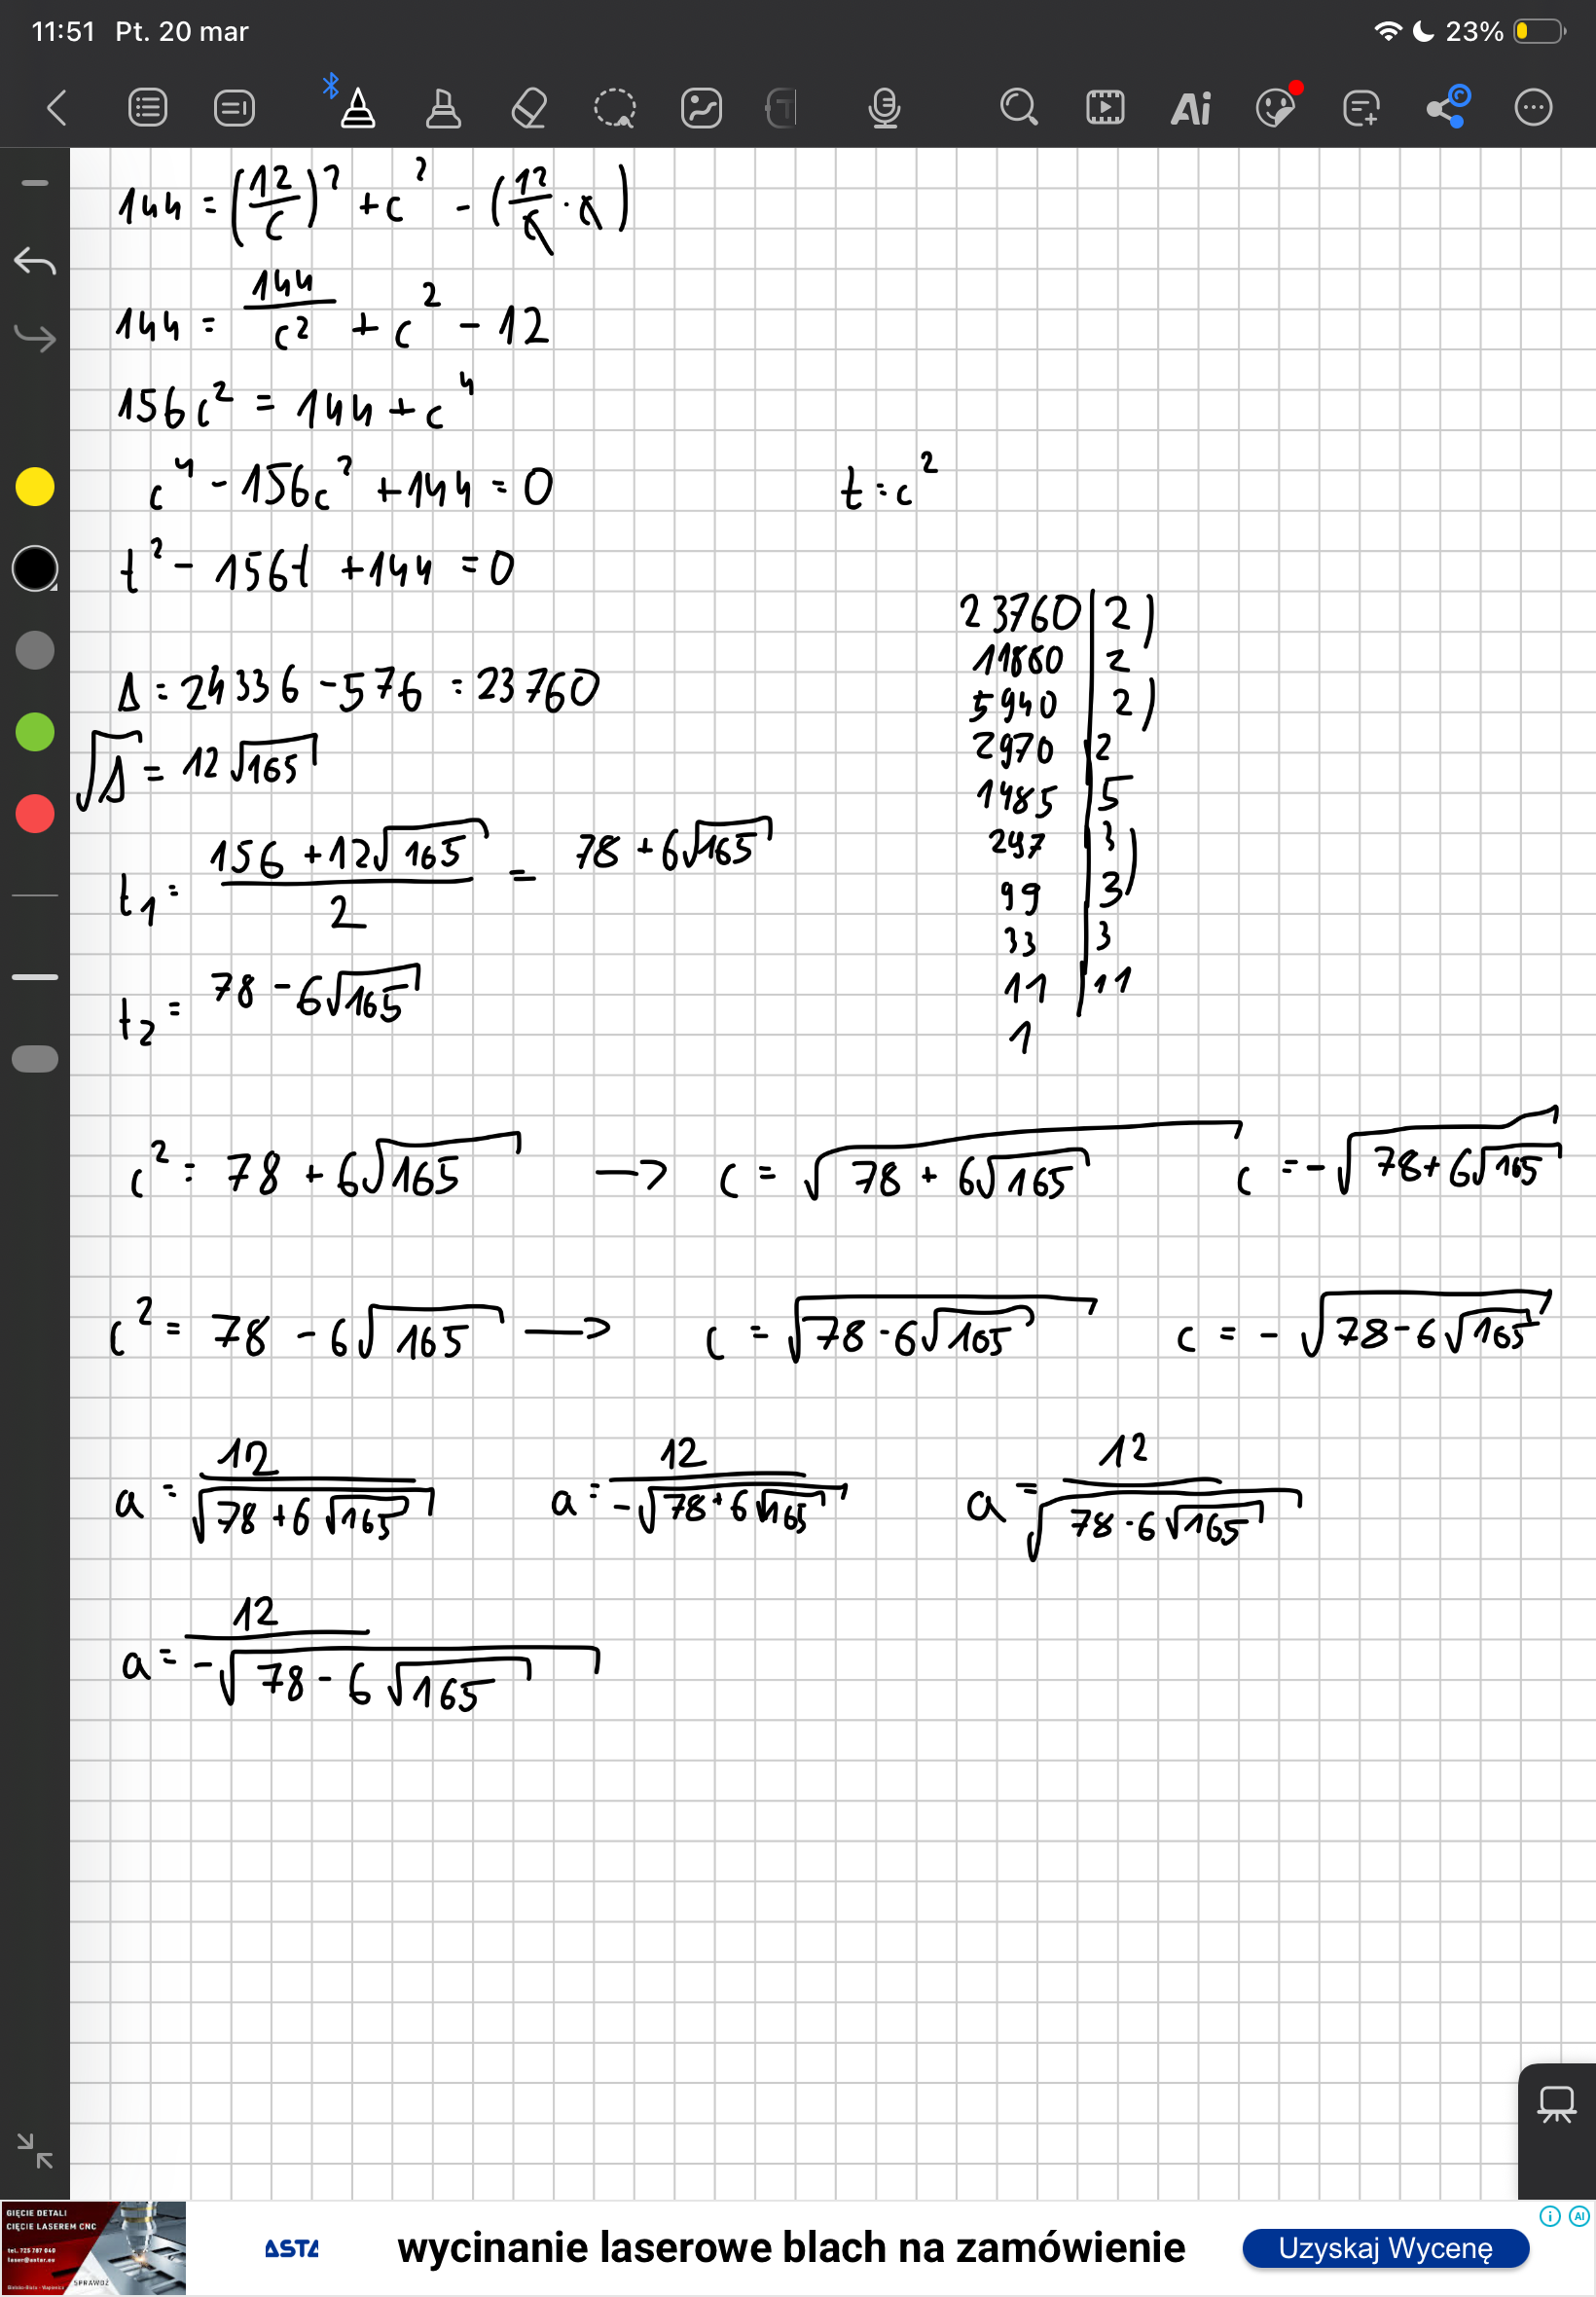 11:51 Pt. 20 mar 23%
Ai
144 = (12/c)² + c² - (12/c · c)
144 = 144/c² + c² - 12
156c² = 144 + c⁴
c⁴ - 156c² + 144 = 0 t = c²
t² - 156t + 144 = 0
23760 | 2)
11880 | 2
5940 | 2)
2970 | 2
1485 | 5
297 | 3
99 | 3)
33 | 3
11 | 11
1
Δ = 24336 - 576 = 23760
√Δ = 12√165
t₁ = (156 + 12√165)/2 = 78 + 6√165
t₂ = 78 - 6√165
c² = 78 + 6√165 → c = √(78 + 6√165) c = -√(78 + 6√165)
c² = 78 - 6√165 → c = √(78 - 6√165) c = -√(78 - 6√165)
a = 12/√(78 + 6√165) a = 12/-√(78 + 6√165) a = 12/√(78 - 6√165)
a = 12/-√(78 - 6√165)
GIĘCIE DETALI
CIĘCIE LASEREM CNC
SPRAWDŹ
ASTA
wycinanie laserowe blach na zamówienie
Uzyskaj Wycenę